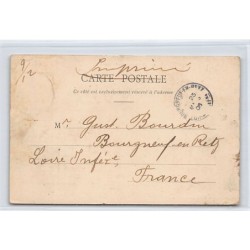 9/2
Imprimé
CARTE POSTALE
Ce côté est exclusivement réservé à l'adresse
Mr Gust. Bourdin
Bourgneuf en Retz
Loire Infére
France